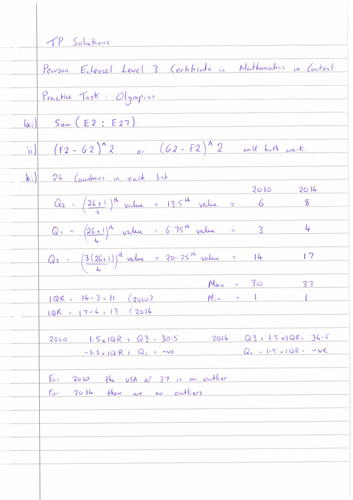 TP Solutions
Pearson Edexcel Level 3 Certificate in Mathematics in Context
Practice Task : Olympics
1ai) Sum (E2 : E27)
ii) (F2 - G2)^2 or (G2 - F2)^2 will both work.
bi) 26 Countries in each list
2010 2014
Q2 = (26+1/2)th value = 13.5th value = 6 8
Q1 = (26+1/4)th value = 6.75th value = 3 4
Q3 = (3(26+1)/4)th value = 20.25th value = 14 17
Max = 30 33
Min = 1 1
IQR = 14-3 = 11 (2010)
IQR = 17-4 = 13 (2014
2010 1.5xIQR + Q3 = 30.5 2014 Q3 + 1.5xIQR = 36.5
-1.5xIQR + Q1 = -ve Q1 - 1.5xIQR = -ve
For 2010 the USA at 37 is an outlier
For 2014 there are no outliers